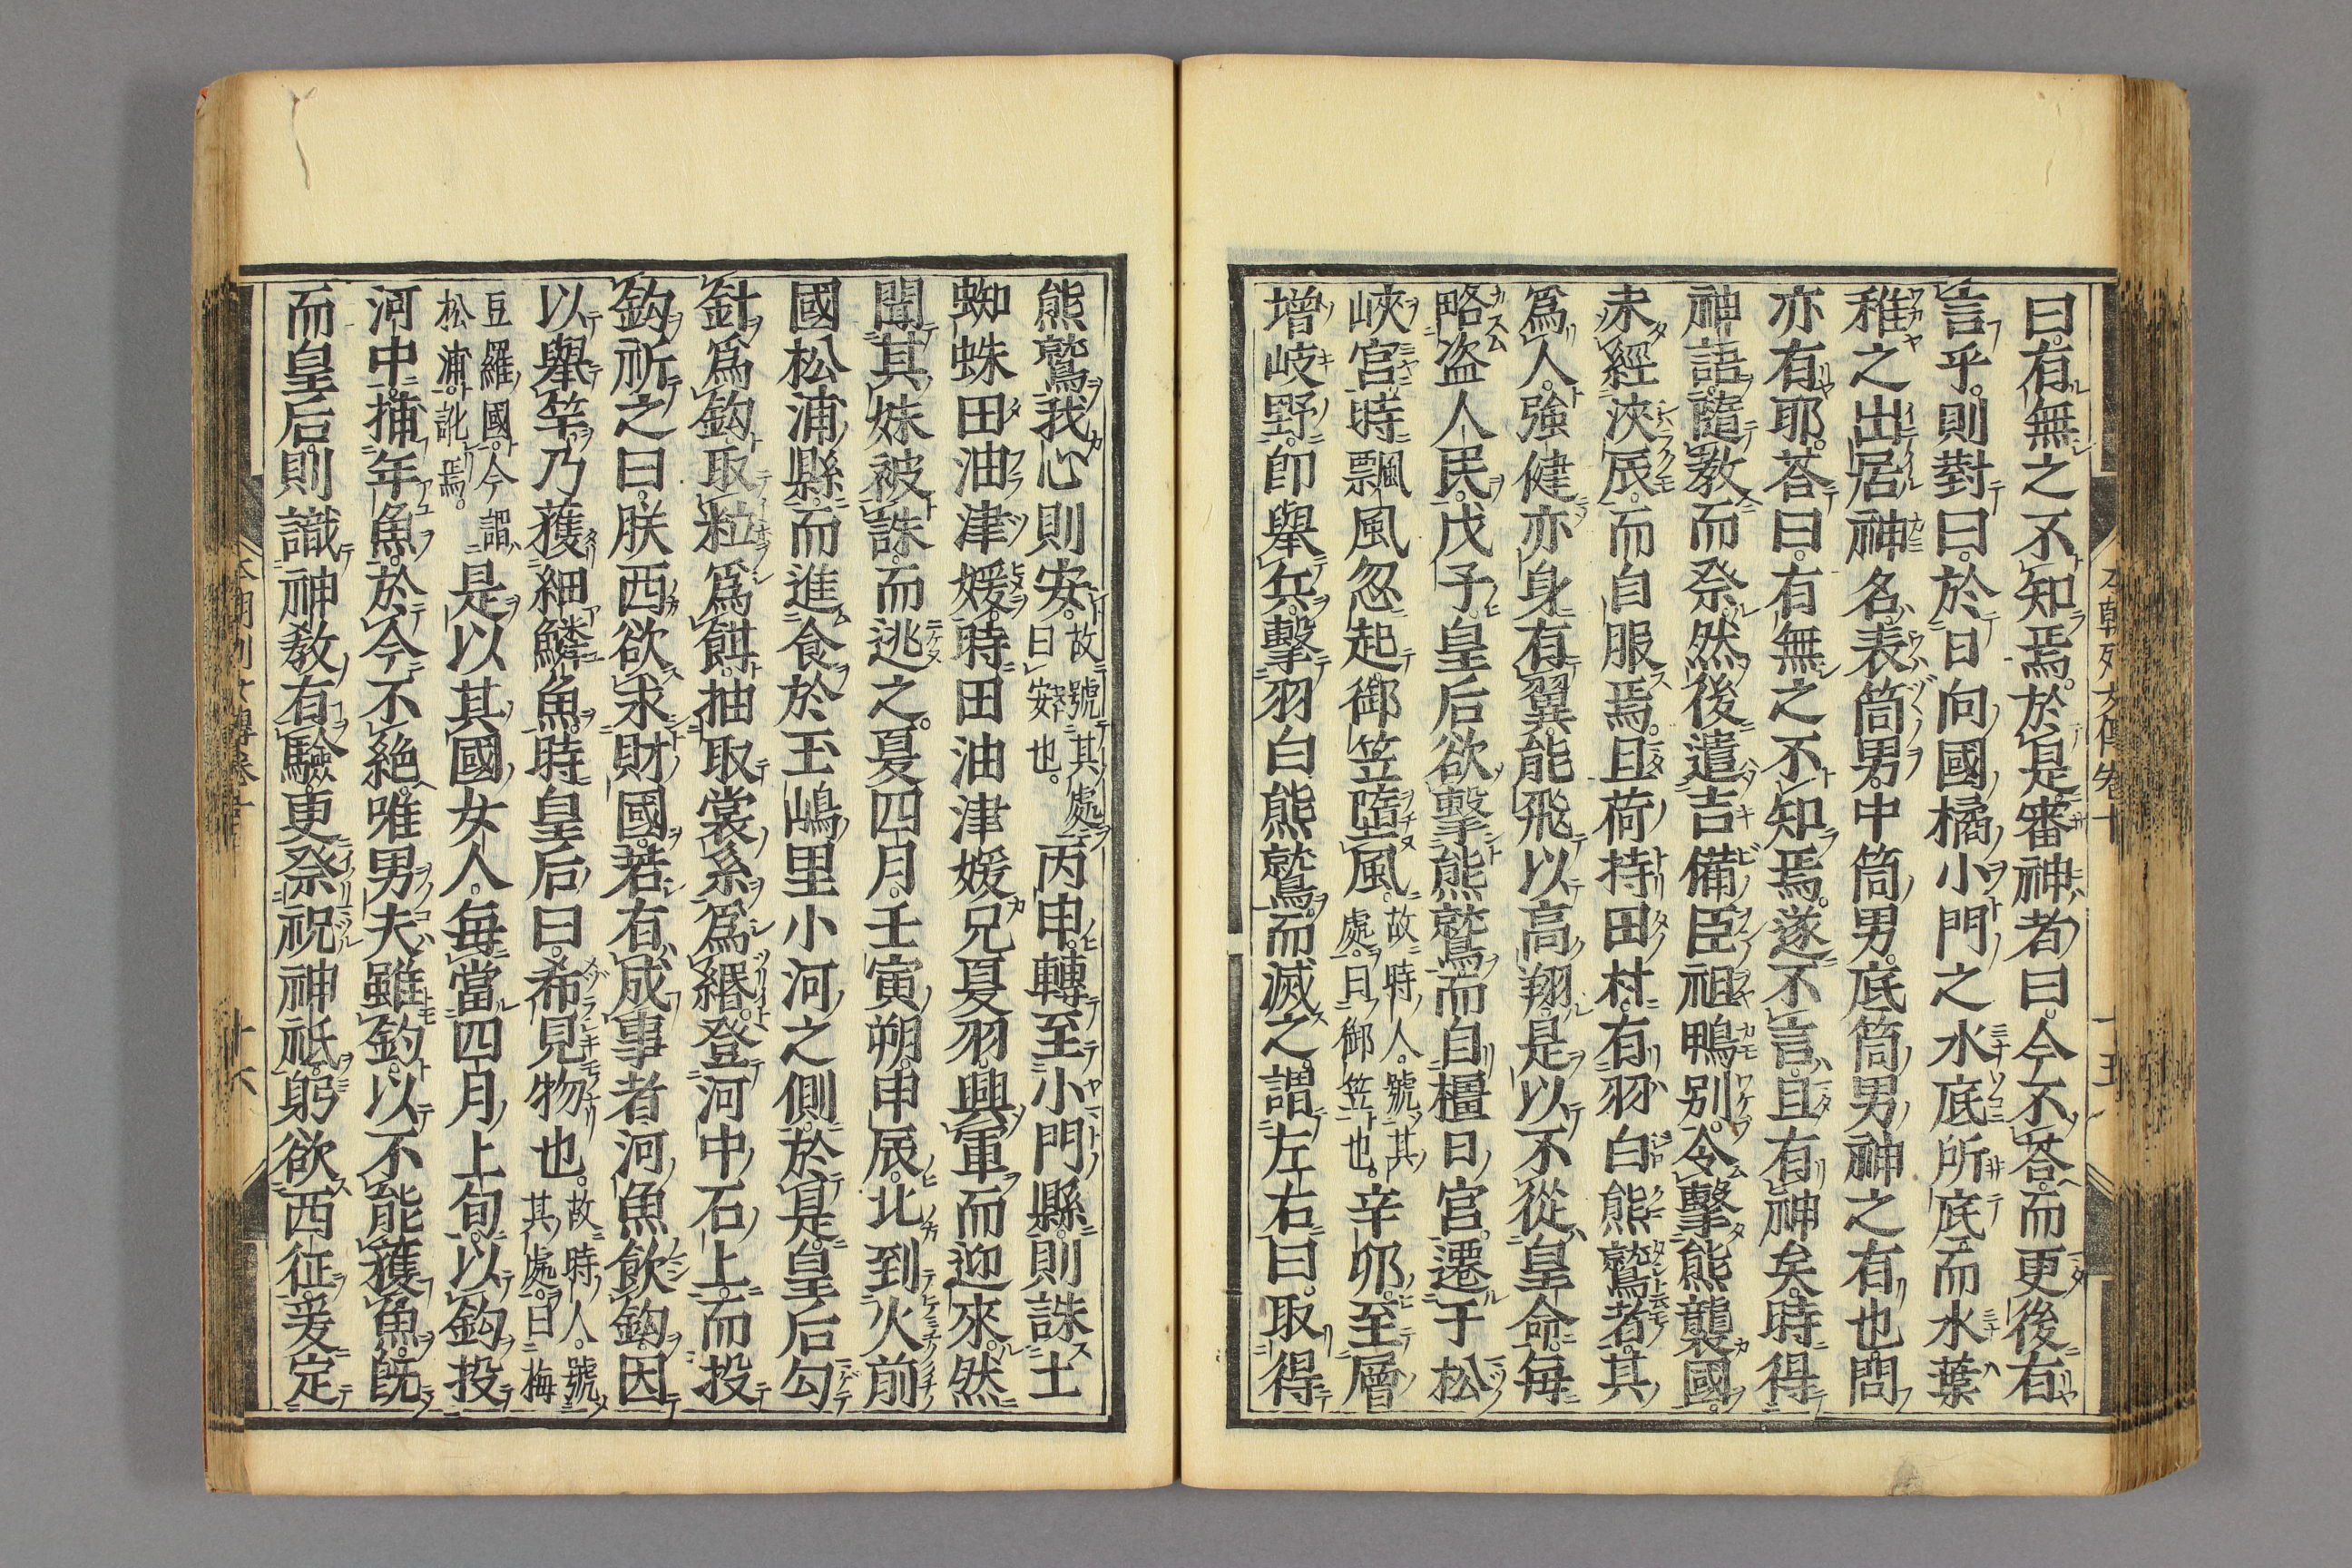 曰。有無之不知焉。於是審神者曰。今不荅。而更後右
言乎。則對曰。於日向國橘小門之水底所底。而水葉
稚之出居神名。表筒男。中筒男。底筒男神之有也。問
亦有耶。荅曰。有無之不知焉。遂不言。且有神矣。時得
神語。隨敎而祭。然後遣吉備臣祖鴨別。令擊熊襲國。
未經浹辰。而自服焉。且荷持田村。有羽白熊鷲者。其
爲人。強健亦身有翼。能飛以高翔。是以不從皇命。每
略盗人民。戊子。皇后欲擊熊鷲。而自橿日宮。遷于松
峽宮。時飄風忽起。御笠墮風。故時人。號其處。曰御笠也。辛卯。至層
增岐野。卽舉兵。擊羽白熊鷲。而滅之。謂左右曰。取得
熊鷲。我心則安。故號其處曰安也。丙申。轉至小門縣。則誅土
蜘蛛田油津媛。時田油津媛兄夏羽。興軍而迎來。然
聞其妹被誅。而逃之。夏四月。壬寅朔。申辰。北到火前
國松浦縣。而進食於玉嶋里小河之側。於是。皇后勾
針爲鈎。取粒爲餌。抽取裳糸爲緡。登河中石上。而投
鈎祈之曰。朕西欲求財國。若有成事者河魚飮鈎。因
以舉竿。乃獲細鱗魚。時皇后曰。希見物也。故時人。號其處。曰梅
豆羅國。今謂松浦。訛焉。是以其國女人。每當四月上旬。以鈎投
河中。捕年魚。於今不絶。唯男夫雖釣。以不能獲魚。旣
而皇后。則識神敎有驗。更祭祝神祇。躬欲西征。爰定
本朝列女傳卷十
十五
本朝列女傳卷十
十六